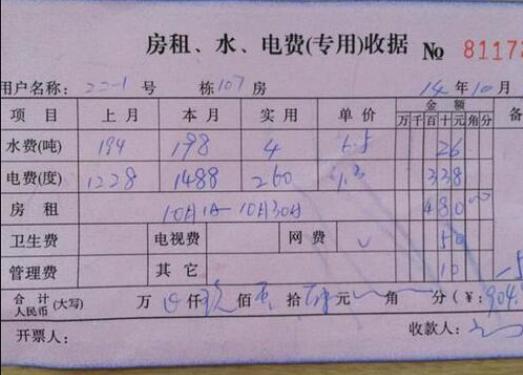 房租、水、电费(专用)收据 № 81173
用户名称: 22-1 号 栋 107 房 14 年 10 月
项目 上月 本月 实用 单价 金额 备
万 千 百 十 元 角 分
水费(吨) 194 198 4 6.5 26
电费(度) 1228 1488 260 1.3 338
房租 10月1日—10月30日 480 00
卫生费 电视费 网费 50
管理费 其它 10
合计人民币(大写) 万 仟 玖 佰 拾 元 角 分(¥: 904.
开票人: 收款人: